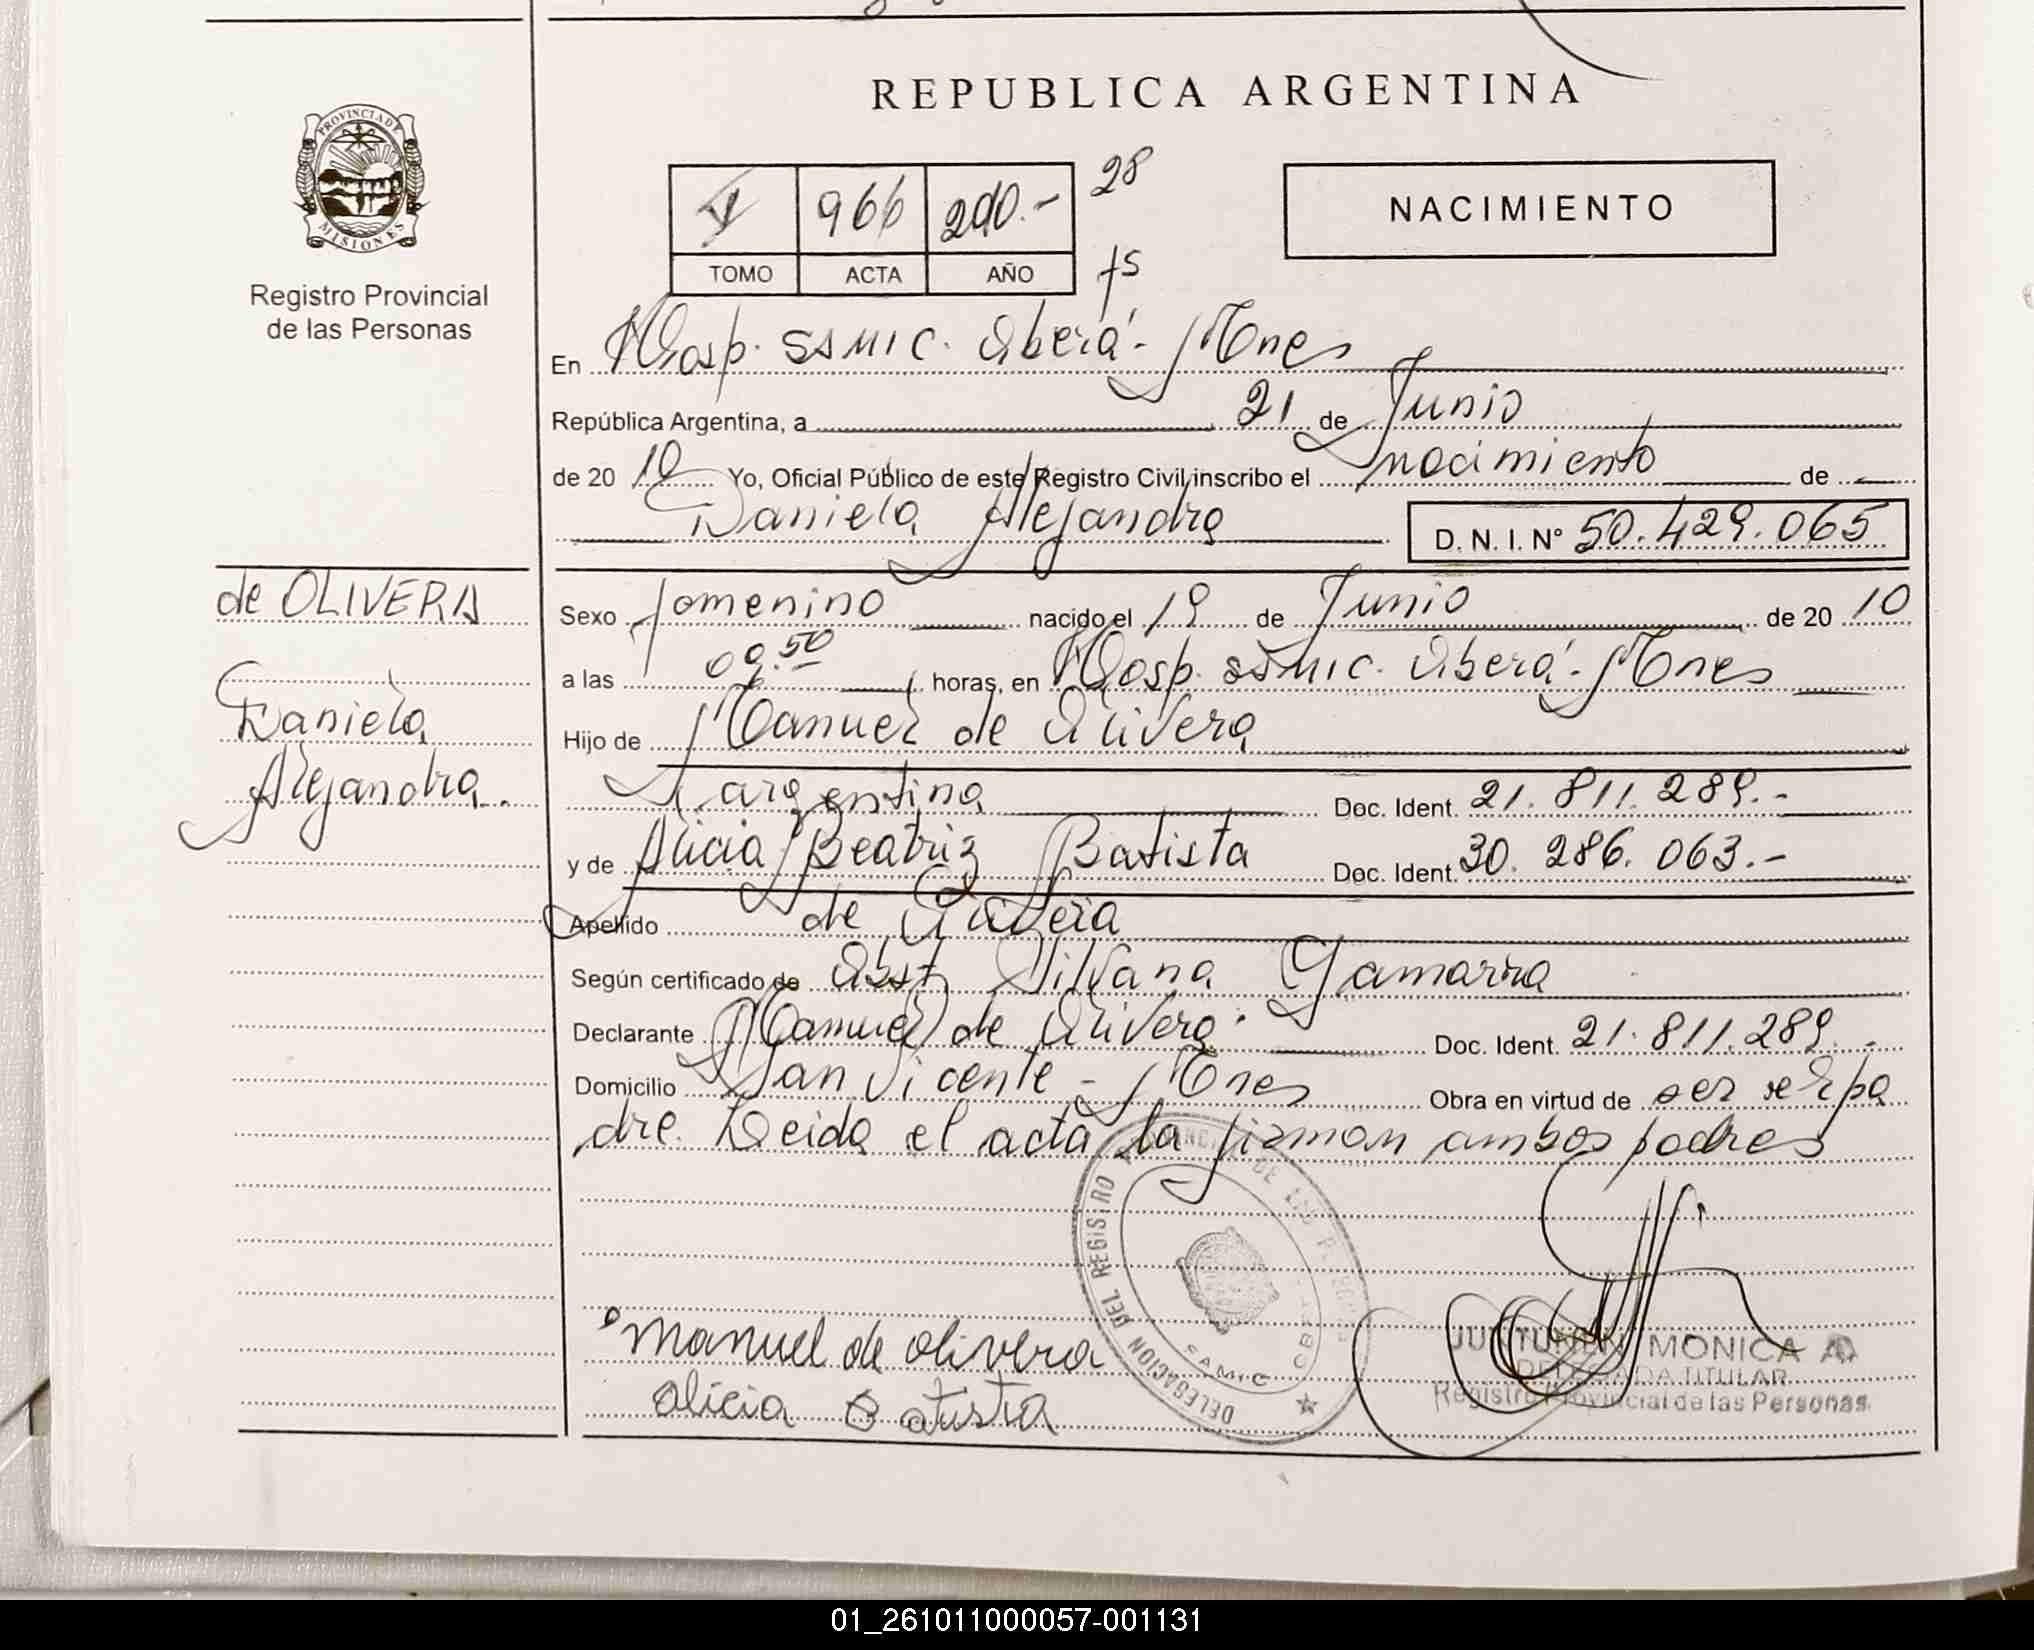 REPUBLICA ARGENTINA
PROVINCIA DE
MISIONES
Registro Provincial
de las Personas
V 966 2010.- 28
TOMO ACTA AÑO fs
NACIMIENTO
En Hosp. SAMIC. Oberá - Mnes
República Argentina, a 21 de Junio
de 20 10 Yo, Oficial Público de este Registro Civil inscribo el nacimiento de
Daniela Alejandra D. N. I. N° 50.429.065
de OLIVERA
Daniela
Alejandra.
Sexo femenino nacido el 19 de Junio de 20 10
a las 09.50 horas, en Hosp. SAMIC. Oberá - Mnes
Hijo de Manuel de Olivera
argentina Doc. Ident. 21.811.289.-
y de Alicia Beatriz Batista Doc. Ident. 30.286.063.-
Apellido de Olivera
Según certificado de Obst. Silvana Gamarra
Declarante Manuel de Olivera Doc. Ident. 21.811.289.-
Domicilio San Vicente - Mnes Obra en virtud de ser el pa
dre. Leida el acta la firman ambos padres
DELEGACION DEL REGISTRO PROVINCIAL DE LAS PERSONAS
SAMIC OBERA
manuel de olivera
alicia Batista
MONICA A.
DELEGADA TITULAR
Registro Provincial de las Personas
01_261011000057-001131